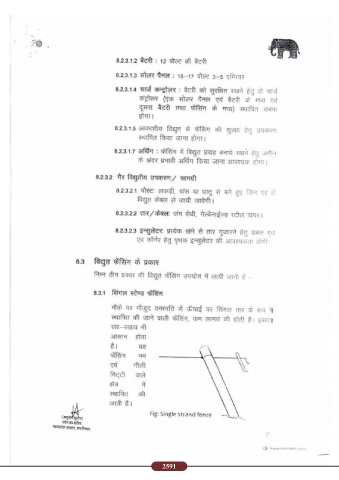 8.2.3.1.2 बैटरी : 12 वोल्ट की बैटरी
8.2.3.1.3 सोलर पैनल : 15-17 वोल्ट 3-5 एम्पियर
8.2.3.1.4 चार्ज कन्ट्रोलर : बैटरी को सुरक्षित रखने हेतु दो चार्ज
कंट्रोलर (एक सोलर पैनल एवं बैटरी के मध्य एवं
दूसरा बैटरी तथा फेंसिंग के मध्य) स्थापित करना
होगा।
8.2.3.1.5 आकाशीय विद्युत से फेंसिंग की सुरक्षा हेतु उपकरण
स्थापित किया जाना होगा।
8.2.3.1.7 अर्थिंग : फेंसिंग में विद्युत प्रवाह बनाये रखने हेतु जमीन
के अंदर प्रभावी अर्थिंग किया जाना आवश्यक होगा।
8.2.3.2 गैर विद्युतीय उपकरण / सामग्री
8.2.3.2.1 पोस्टः लकड़ी, बांस या धातु से बने हुए जिन पर से
विद्युत केबल ले जायी जायेगी।
8.2.3.2.2 तार/केबलः जंग रोधी, गेल्वेनाईज्ड स्टील वायर।
8.2.3.2.3 इन्सुलेटरः प्रत्येक खंभे से तार गुजारने हेतु डबल
एवं कॉर्नर हेतु पृथक इन्सुलेटर की आवश्यकता होगी
8.3 विद्युत फेंसिंग के प्रकार
निम्न तीन प्रकार की विद्युत फेंसिंग उपयोग में लायी जाती है –
8.3.1 सिंगल स्टेण्ड फेंसिंग
मौके पर मौजूद वनस्पति से ऊँचाई पर सिंगल तार के रूप में
स्थापित की जाने वाली फेंसिंग, कम लागत की होती है। इसका
रख-रखाव भी
आसान होता
है। यह
फेंसिंग नम
एवं गीली
मिट्टी वाले
क्षेत्र में
स्थापित की
जाती है।
Fig: Single strand fence
2591